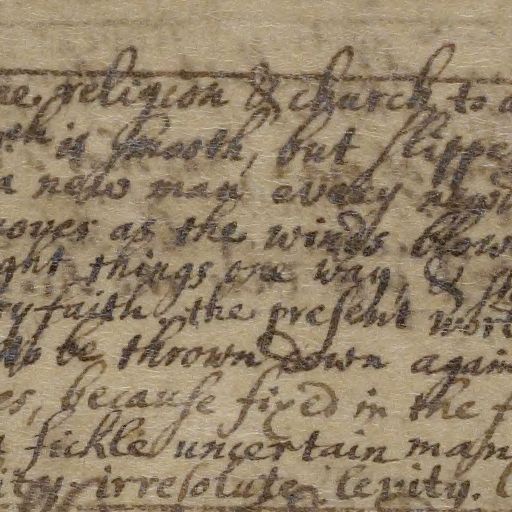 ne religion & church to a
is smooth, but slippe
a new man every new
over as the winds blow
ght things one way, &
ry faith the present wor
to be thrown down again
es, because fixed in the f
fickle uncertain man
ity irresolute levity.